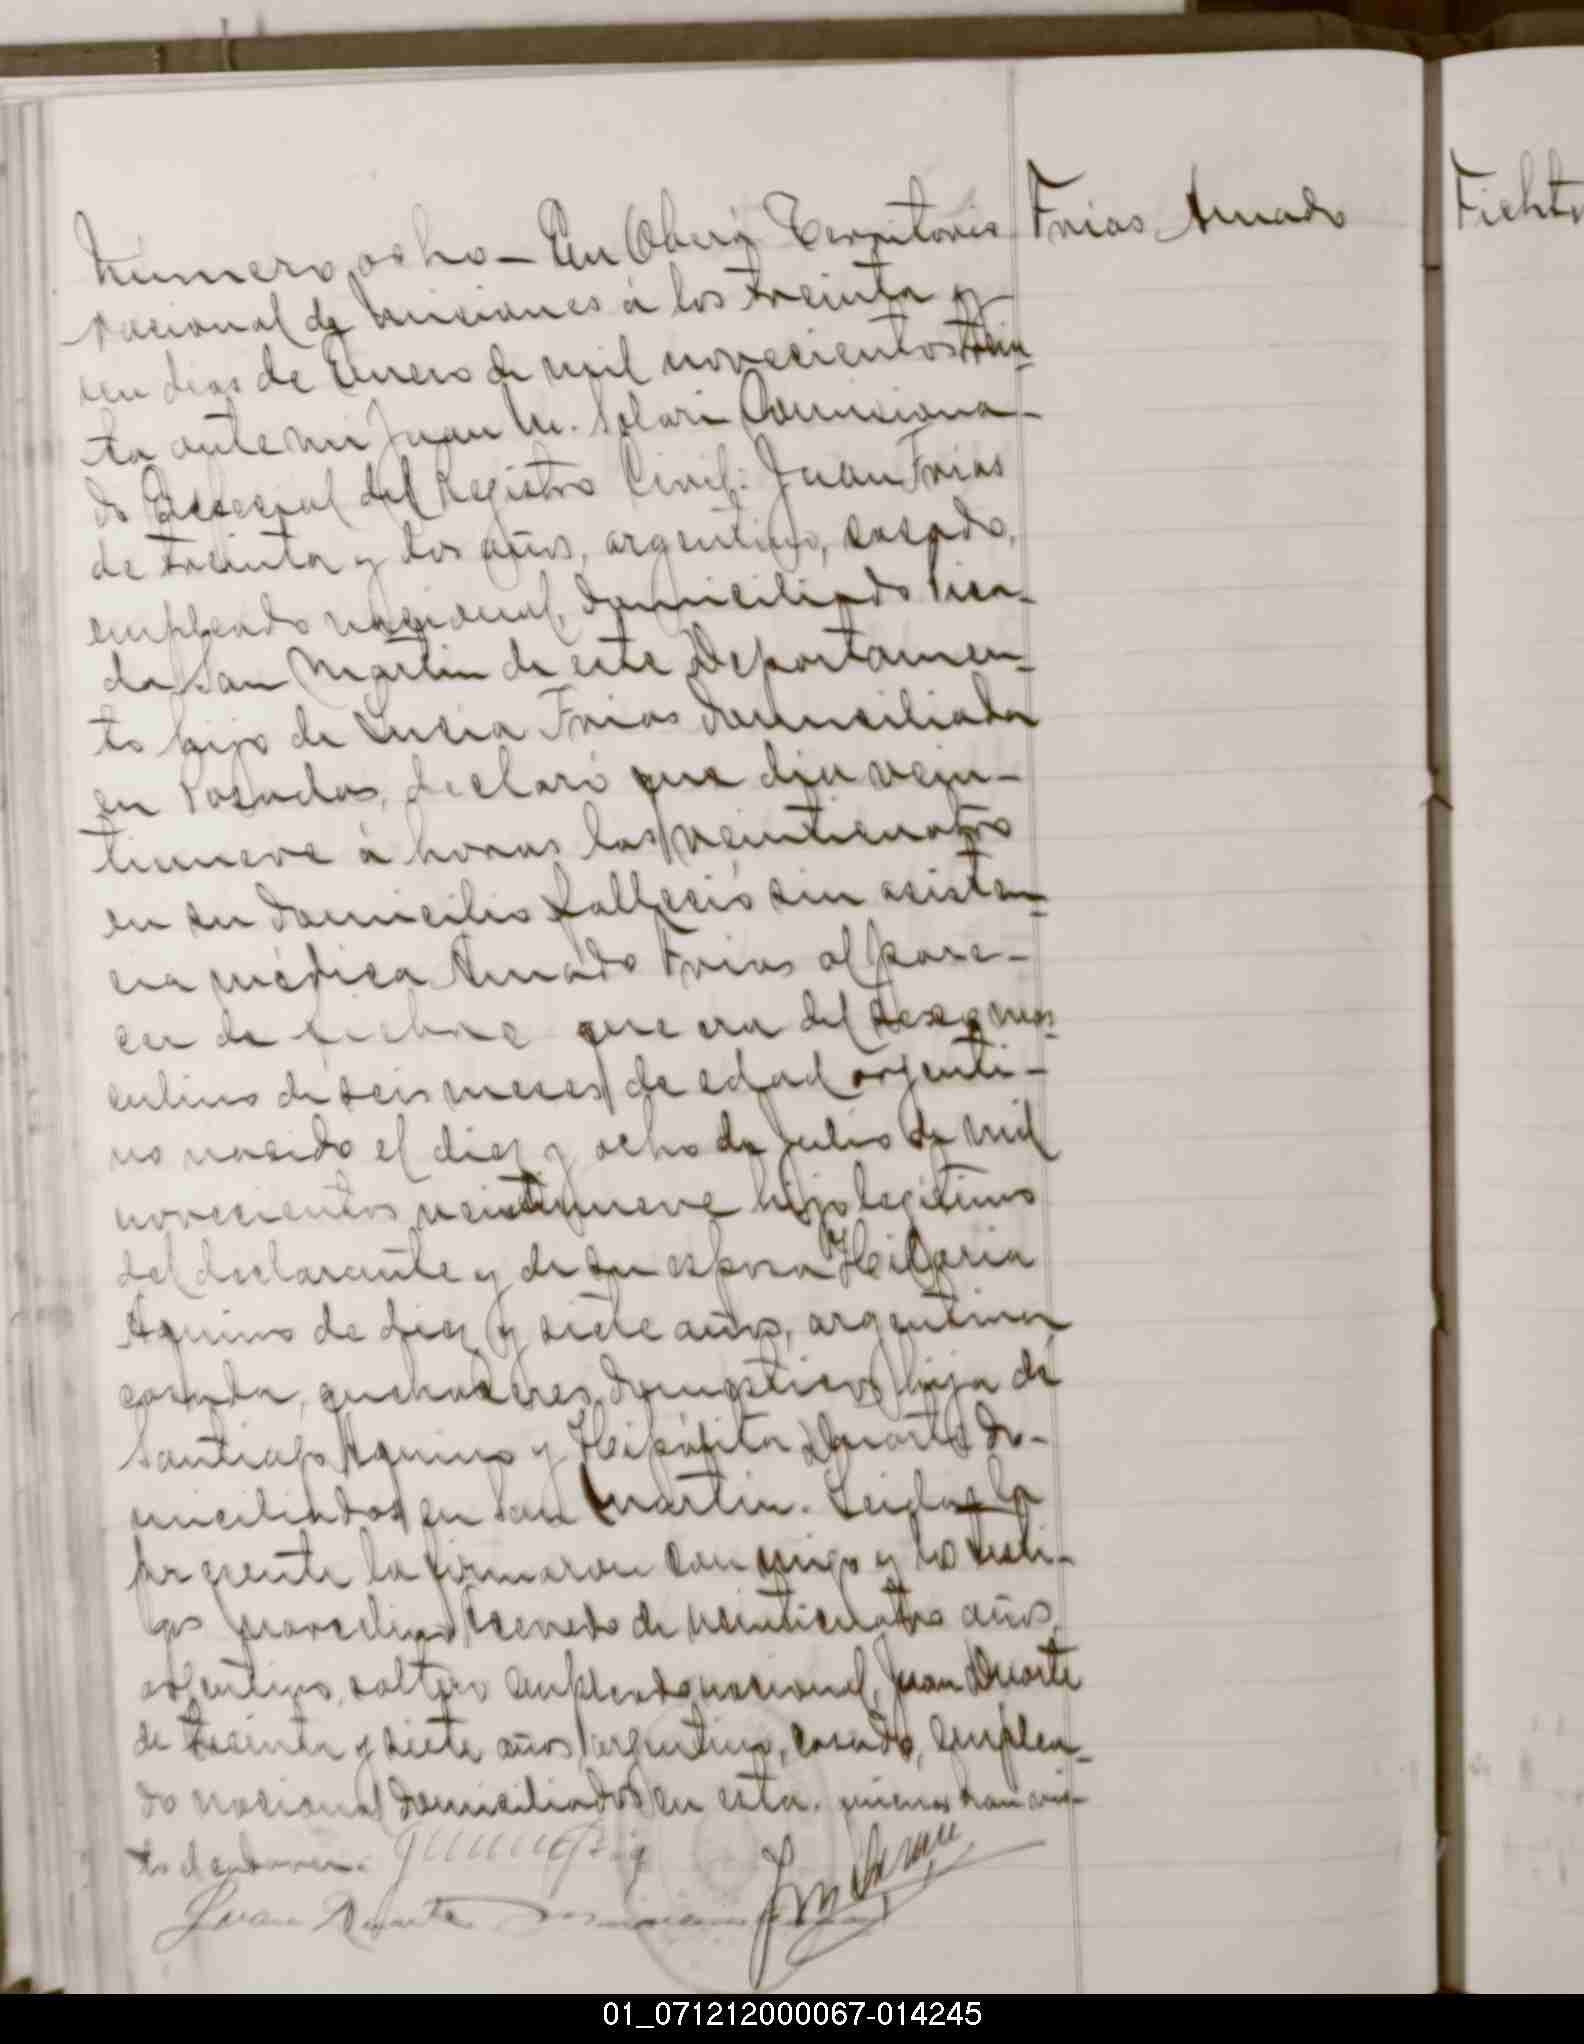 Numero ocho — En Oberá Territorio
Nacional de Misiones á los treinta y
un dias de Enero de mil novecientos trein-
ta ante mi Juan M. Solari Comisiona-
do Especial del Registro Civil: Juan Frias
de treinta y dos años, argentino, casado,
empleado nacional, domiciliado Pica-
da San Martin de este Departamen-
to hijo de Lucia Frias domiciliada
en Posadas, declaró que dia vein-
tinueve á horas las veinticuatro
en su domicilio falleció sin asisten-
cia médica Amado Frias al pare-
cer de fiebre que era del sexo mas-
culino de seis meses de edad argenti-
no nacido el diez y ocho de Julio de mil
novecientos veintinueve hijo legitimo
del declarante y de su esposa Hilaria
Aquino de diez y siete años, argentina
casada, quehaceres domesticos hija de
Santiago Aquino y Hipólita Duarte do-
miciliados en San Martin. Leida la
presente la firmaron con migo y los testi-
gos Marcelino Acevedo de veinticuatro años,
argentino, soltero empleado nacional, Juan Duarte
de treinta y siete años argentino, casado, emplea-
do nacional domiciliados en esta. quienes han vis-
to el cadaver.
Juan Duarte
Frias Amado
01_071212000067-014245